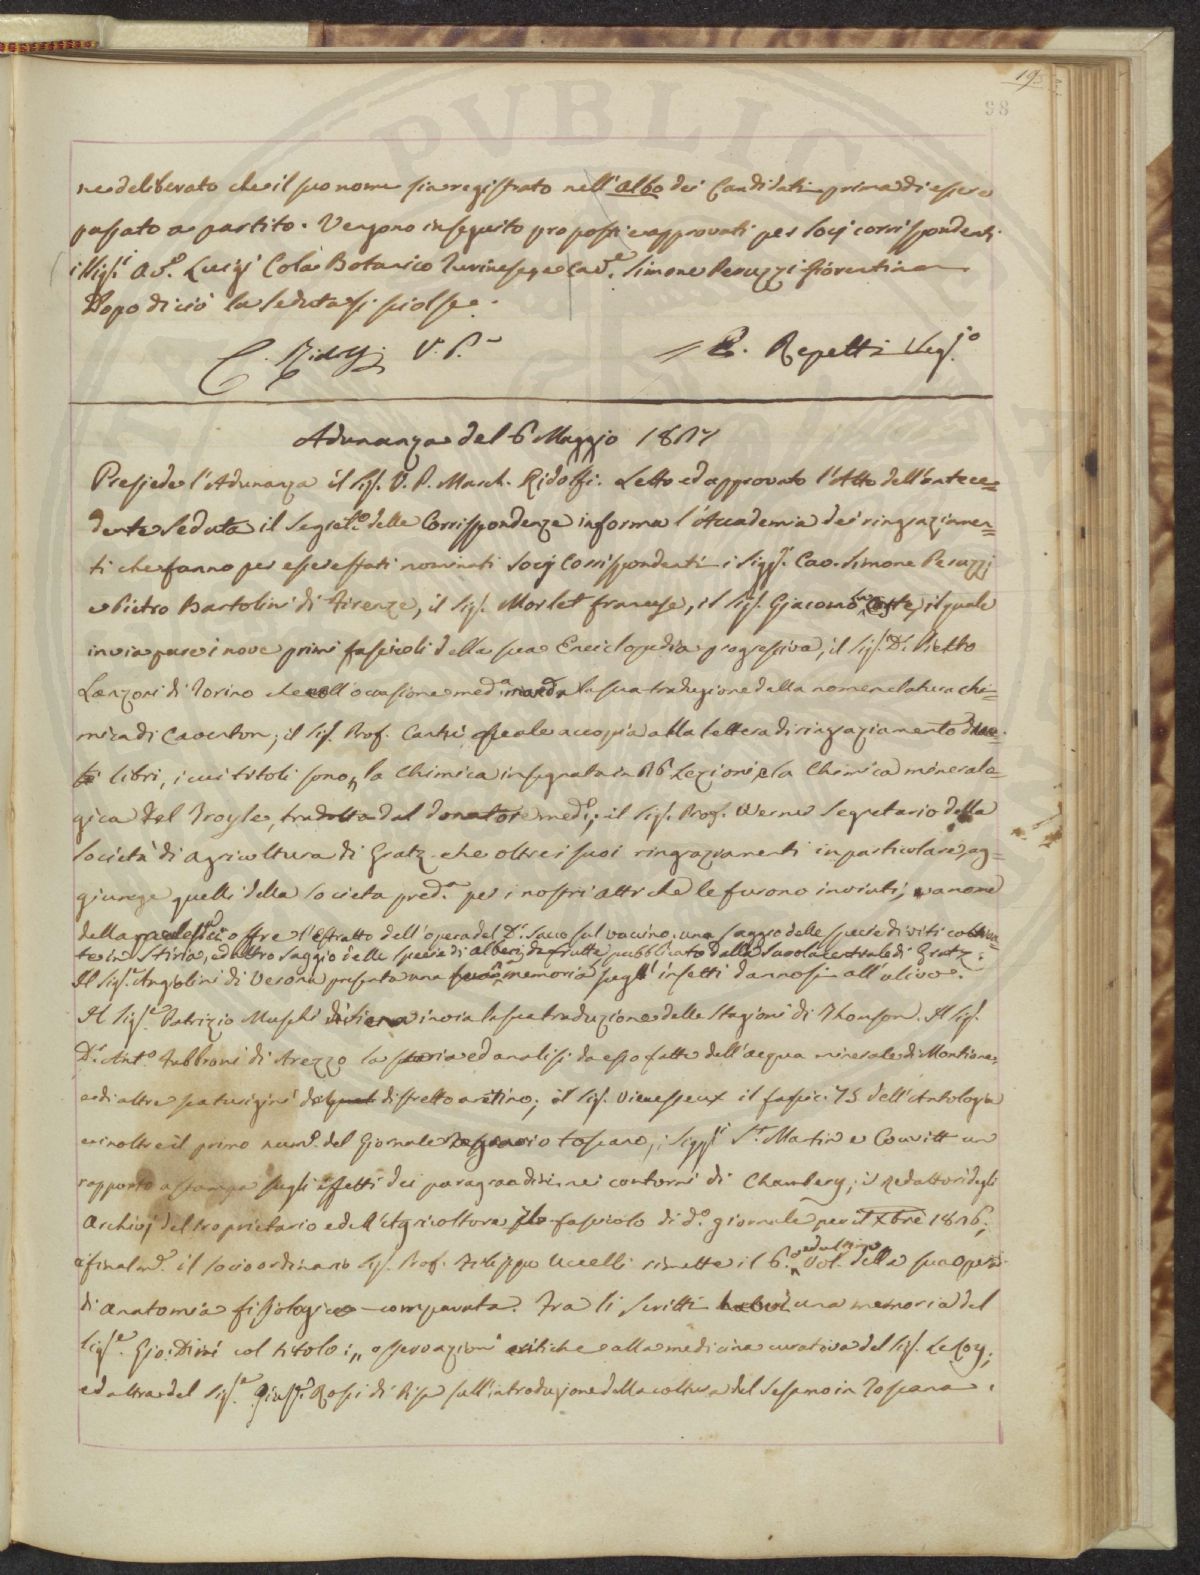 195
98
ne deliberato che il suo nome sia registrato nell'albo dei Candidati prima di essere
passato a partito. Vengono in seguito proposti e approvati per Socj corrispondenti
i Sigg.i Av.o Luigi Cola Botanico Turinese e Cav.e Simone Peruzzi fiorentino
Dopo di ciò la Seduta si sciolse.
C. Ridolfi V. P.
E. Repetti Seg.io
Adunanza del 6 Maggio 1827
Presiede l'Adunanza il Sig. V. P. March. Ridolfi. Letto ed approvato l'Atto dell'antece=
dente Seduta il Segret.o delle Corrispondenze informa l'Accademia dei ringraziamen=
ti che fanno per esser stati nominati Socj Corrispondenti i Sigg.i Cav. Simone Peruzzi
e Pietro Bartolini di Firenze, il Sig. Morlet francese, il Sig. Giacomo il quale
invia pure i nove primi fascicoli della sua Enciclopedia progressiva; il Sig. D. Pietro
Lanzoni di Torino che nell'occasione med.a manda la sua traduzione della nomenclatura chi=
mica di Caventou; il Sig. Prof. Cantù il quale accoppia alla lettera di ringraziamento due
libri, i cui titoli sono „ la Chimica insegnata in 26 Lezioni, e la Chimica minerala=
gica del Broyle, tradotta dal donatore med.o; il Sig. Prof. Werne Segretario della
Società di Agricoltura di Gratz che oltre i suoi ringraziamenti in particolare, ag=
giunge quelli della Società pred.a per i nostri Atti che le furono inviati; a nome
della quale offre l'Estratto dell'opera del D. Sacco sul vaccino, un saggio delle specie di viti coltiva=
te in Stiria, ed altro saggio delle specie di alberi da frutte pubblicato dalla Scuola centrale di Gratz;
Il Sig.e Angiolini di Verona presenta una memoria sugl'insetti dannosi all'ulivo.
Il Sig.e Patrizio Muschi di Siena invia la sua traduzione delle Stagioni di Thonson. Il Sig.
D. Ant.o Fabbroni di Arezzo la storia ed analisi da esso fatte dell'acqua minerale di Montione
e di altre scaturigini del distretto aretino; il Sig. Vieusseux il fascic: 75 dell'Antologia
e inoltre il primo num.o del Giornale Agrario toscano; i Sigg.i S.t Martin e Couvitt un
rapporto a stampa sugli effetti dei paragrandini nei contorni di Chambery; i Redattori degli
Archivj del Proprietario e dell'Agricoltore fascicolo di d.o giornale per il Xbre 1826;
e final.e il socio ordinario Sig. Prof. Filippo Uccelli rimette il 6.o ed ultimo Vol. della sua Opera
di Anatomia fisiologico-comparata. Tra li Scritti una memoria del
Sig.e Gio: Dini col titolo: „ osservazioni critiche alla medicina curativa del Sig. Le Roy;
ed altra del Sig.e Gius.e Rossi di Pisa sull'introduzione della coltura del Sesamo in Toscana.